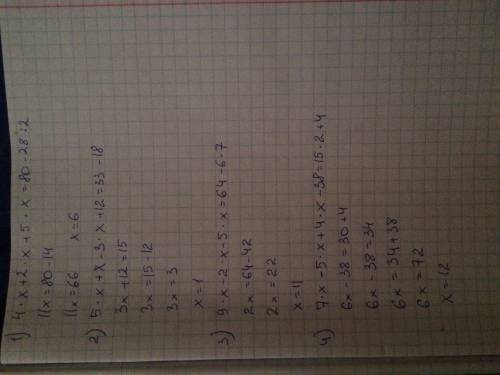 1) 4·x+2·x+5·x=80-28:2
11x=80-14
11x=66 x=6
2) 5·x+x-3·x+12=33-18
3x+12=15
3x=15-12
3x=3
x=1
3) 9·x-2·x-5·x=64-6·7
2x=64-42
2x=22
x=11
4) 7·x-5·x+4·x-38=15·2+4
6x-38=30+4
6x-38=34
6x=34+38
6x=72
x=12